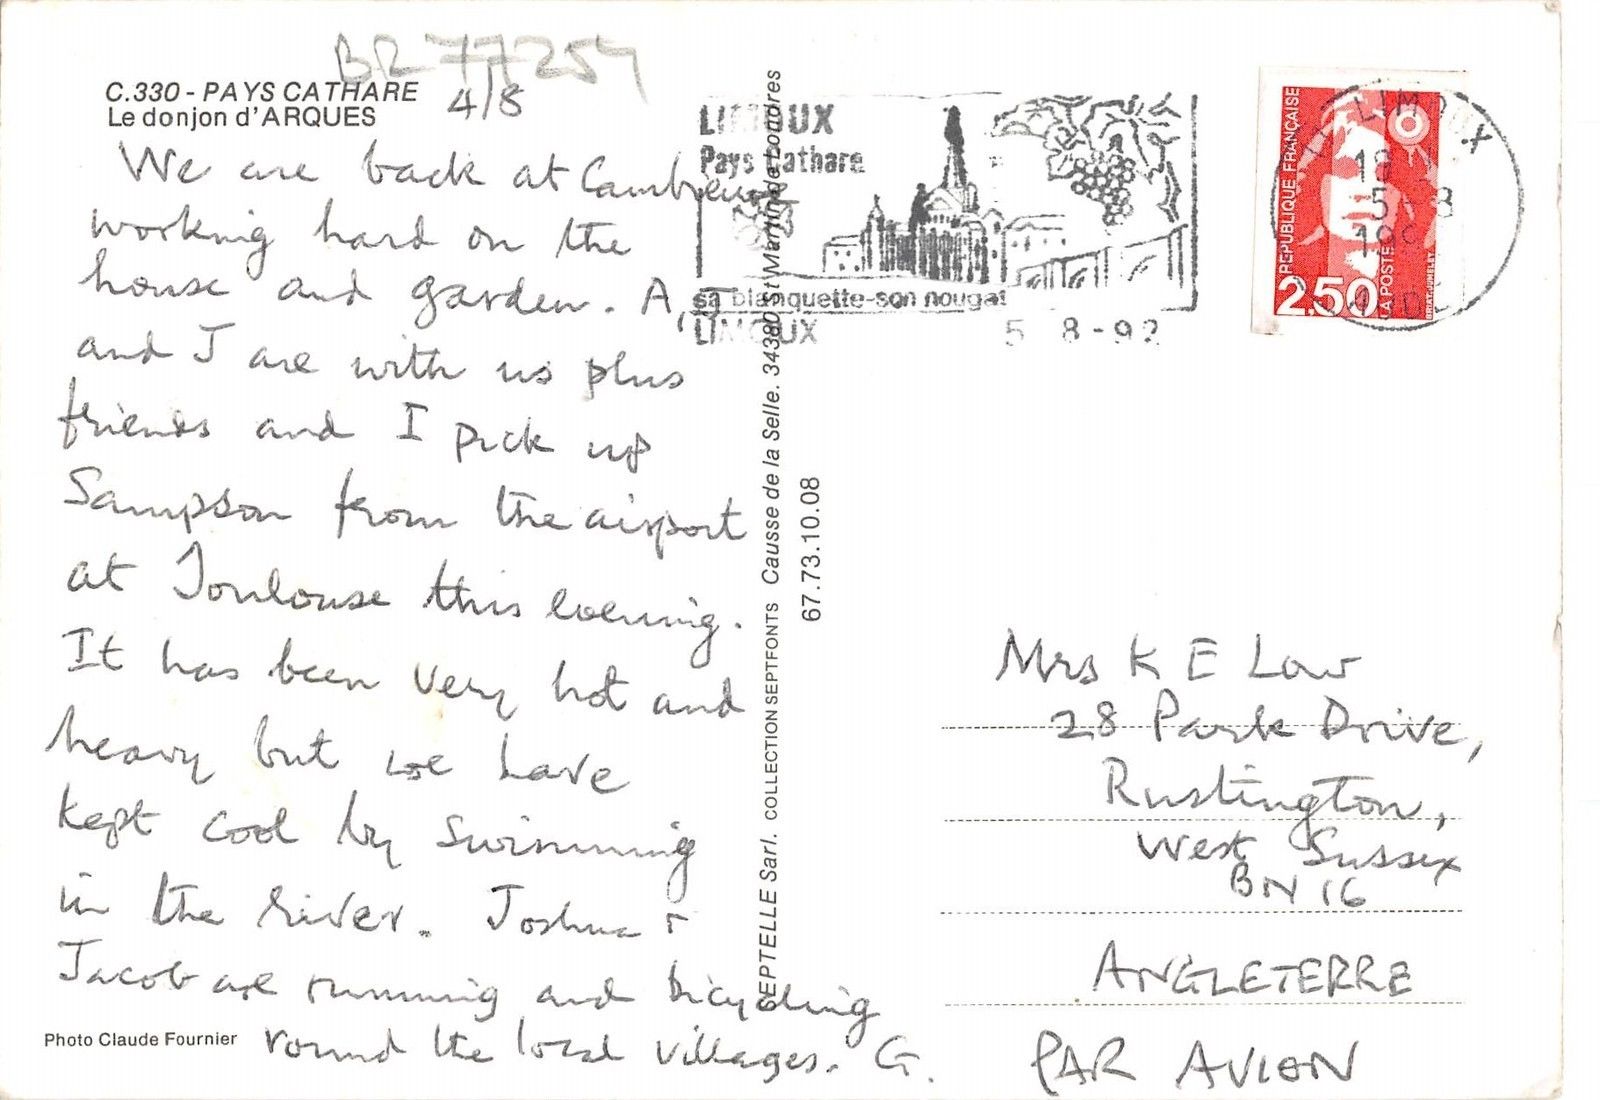 BR 77254
C.330 - PAYS CATHARE
Le donjon d'ARQUES
4/8
We are back at
working hard on the
house and garden. A, J
and J are with us plus
friends and I pick up
Sampson from the airport
at Toulouse this evening.
It has been very hot and
heavy but we have
kept cool by swimming
in the river. Joshua +
Jacob are running and bicycling
round the local villages. G.
Photo Claude Fournier
SEPTELLE Sarl. COLLECTION SEPTFONTS Causse de la Selle. 34380 St Martin de Londres
67.73.10.08
LIMOUX
Pays Cathare
sa blanquette-son nougat
LIMOUX 5 8-92
RÉPUBLIQUE FRANÇAISE
2.50
LA POSTE
LIMOUX
5 8
Mrs K E Low
28 Park Drive,
Rustington,
West Sussex
BN 16
ANGLETERRE
PAR AVION